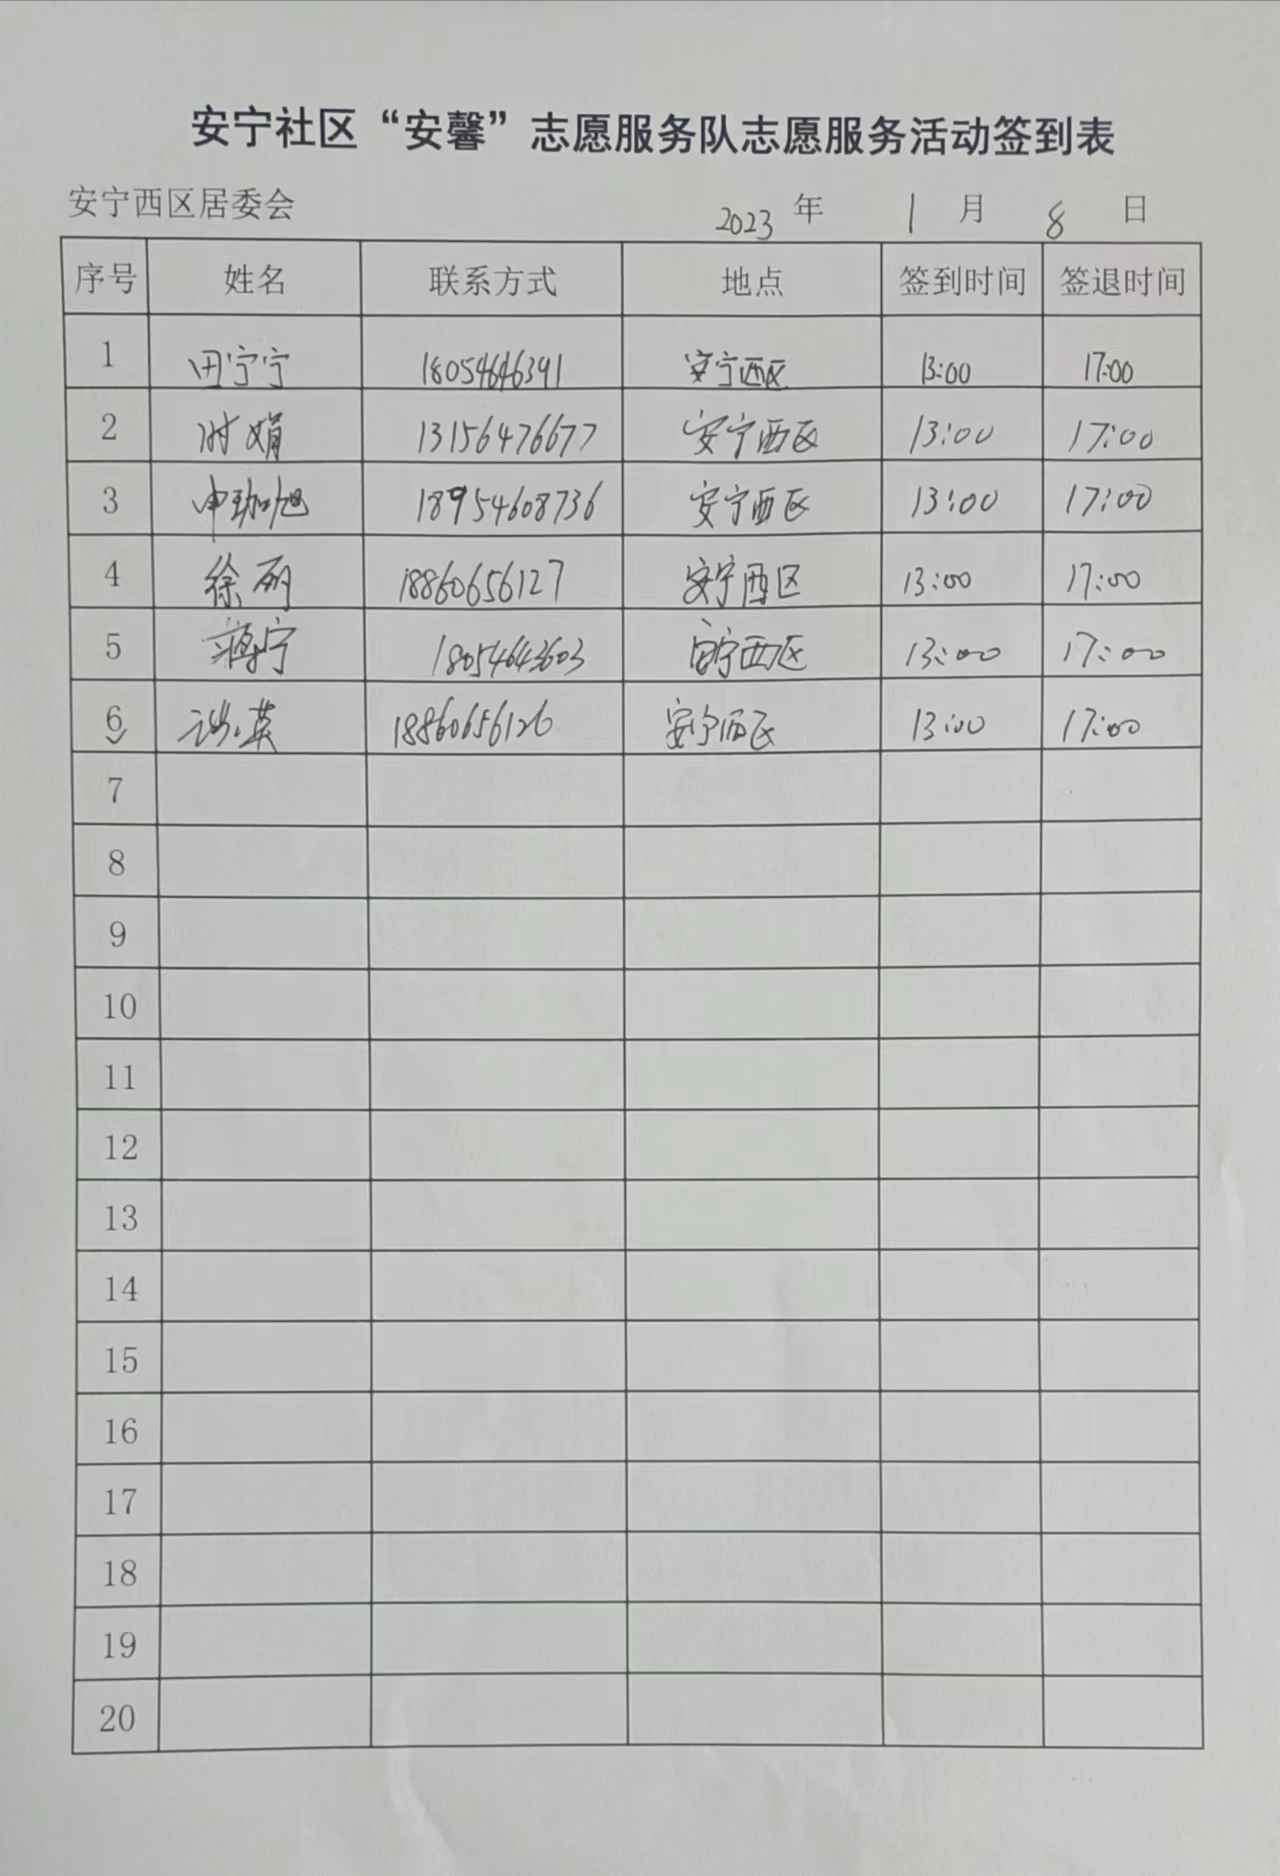 安宁社区“安馨”志愿服务队志愿服务活动签到表
安宁西区居委会 2023 年 1 月 8 日
序号 姓名 联系方式 地点 签到时间 签退时间
1 田宁宁 18054646391 安宁西区 13:00 17:00
2 时娟 13156476677 安宁西区 13:00 17:00
3 申珈旭 18954608736 安宁西区 13:00 17:00
4 徐丽 18860656127 安宁西区 13:00 17:00
5 蒋宁 18054643603 安宁西区 13:00 17:00
6 18860656126 安宁西区 13:00 17:00
7
8
9
10
11
12
13
14
15
16
17
18
19
20